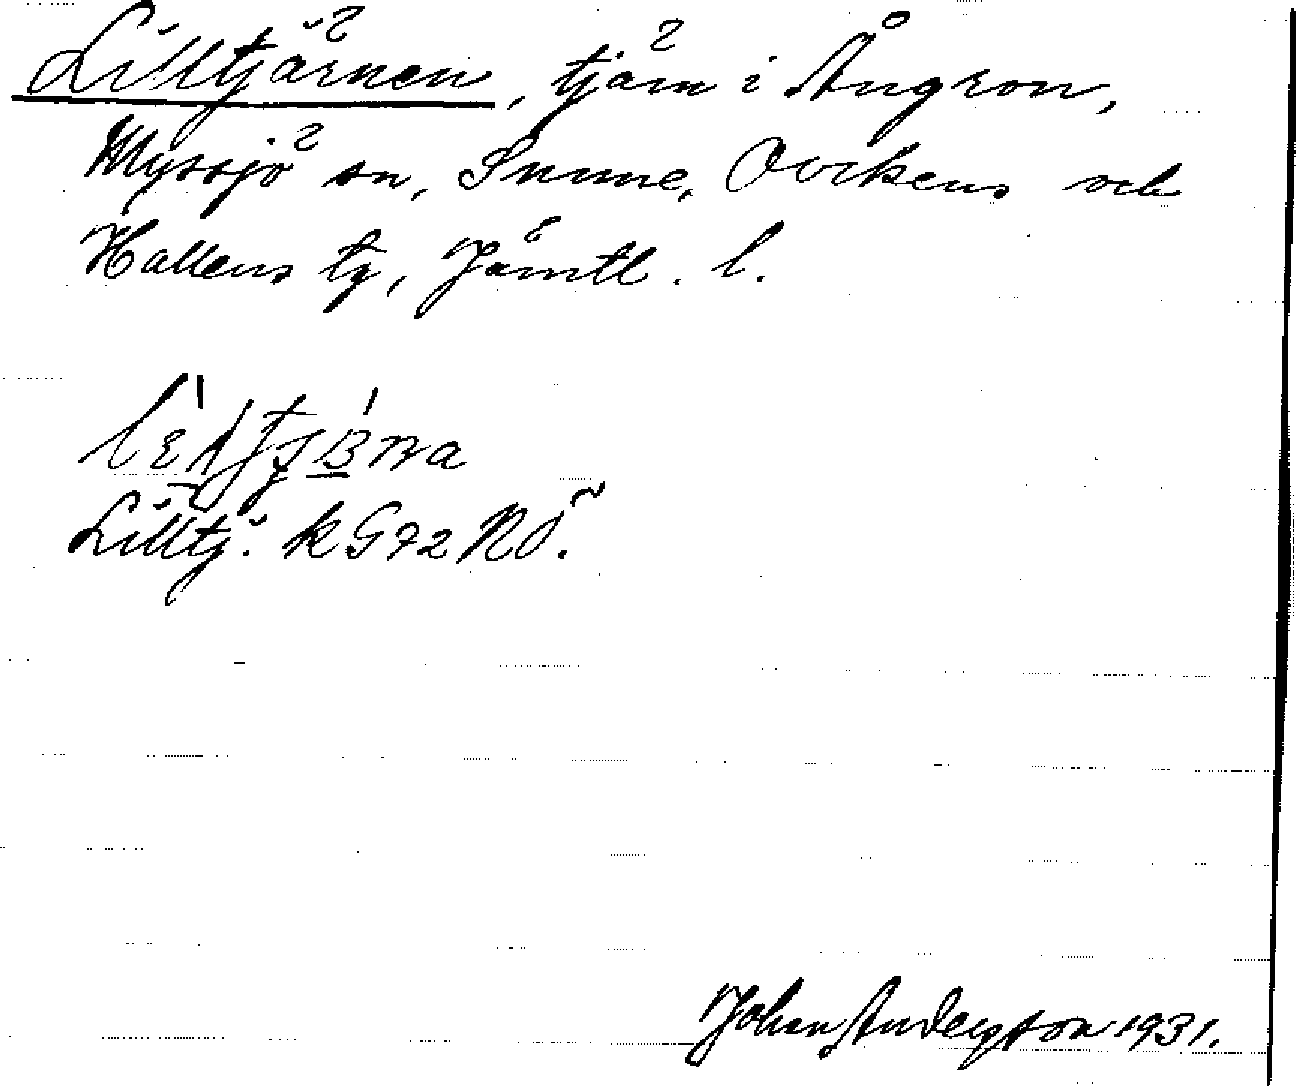 Lilltjärnen, tjärn i Ångron,
Myssjö sn, Sunne, Ovikens och
Hallens tg, Jämtl. l.
Lilltj. k G 72 NÖ.
Johan Andersson 1931.